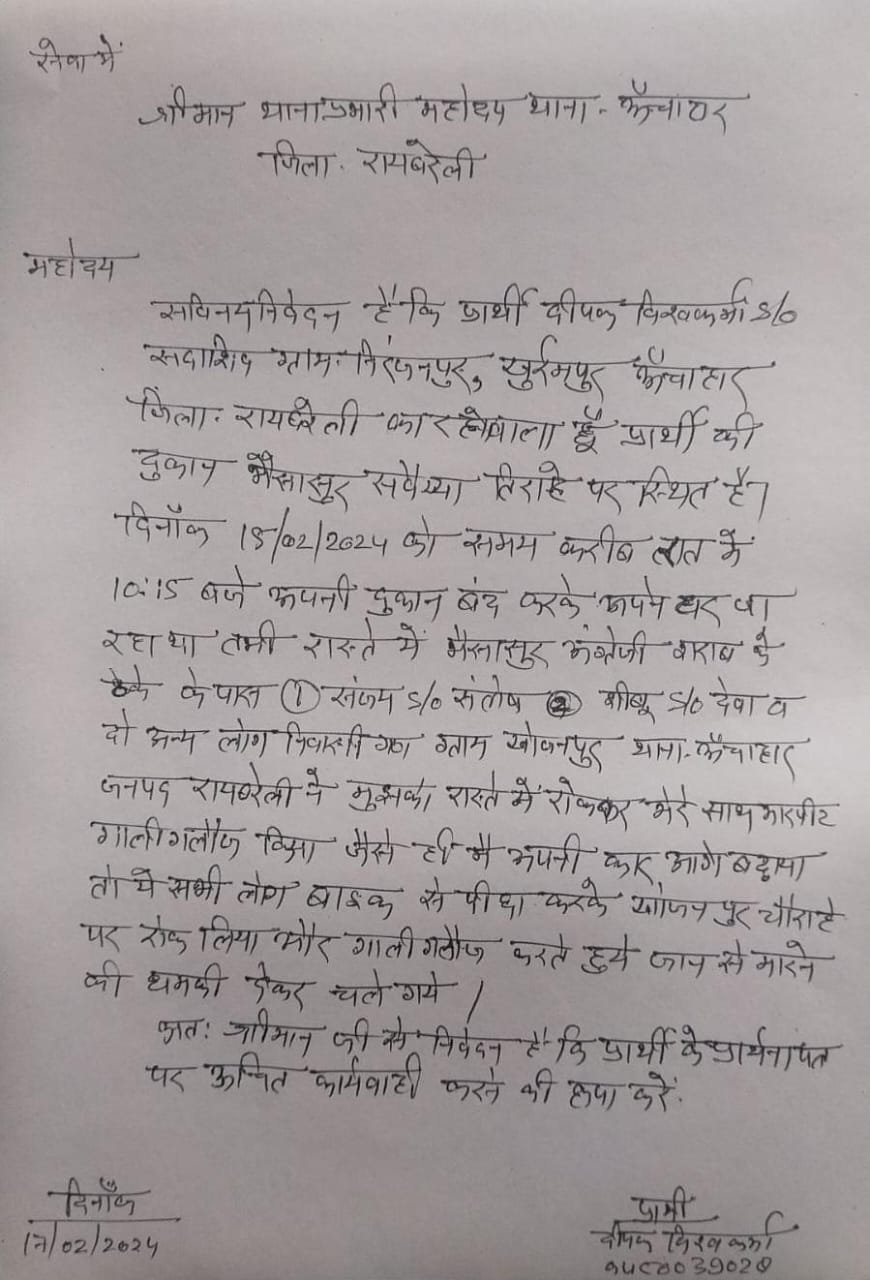 सेवा में
श्रीमान थानाप्रभारी महोदय थाना - ऊँचाहार
जिला - रायबरेली
महोदय
सविनय निवेदन है कि प्रार्थी दीपक विश्वकर्मा S/o
सदाशिव ग्राम - निरंजनपुर, खुर्रमपुर ऊँचाहार
जिला - रायबरेली का रहनेवाला हूँ प्रार्थी की
दुकान भैसासुर सवैय्या तिराहे पर स्थित है।
दिनाँक 15/02/2024 को समय करीब रात में
10:15 बजे अपनी दुकान बंद करके अपने घर जा
रहा था तभी रास्ते में भैसासुर अंग्रेजी शराब के
ठेके के पास ① संजय S/o संतोष ② शीबू S/o देवा व
दो अन्य लोग निवासी गण ग्राम खोजनपुर थाना - ऊँचाहार
जनपद रायबरेली ने मुझको रास्ते में रोककर मेरे साथ मारपीट
गालीगलौज किया जैसे ही मै अपनी कार आगे बढ़ाया
तो ये सभी लोग बाइक से पीछा करके खोजनपुर चौराहे
पर रोक लिया और गालीगलौज करते हुये जान से मारने
की धमकी देकर चले गये।
अतः श्रीमान जी से निवेदन है कि प्रार्थी के प्रार्थनापत्र
पर उचित कार्यवाही करने की कृपा करें.
दिनाँक
17/02/2024
प्रार्थी
दीपक विश्वकर्मा